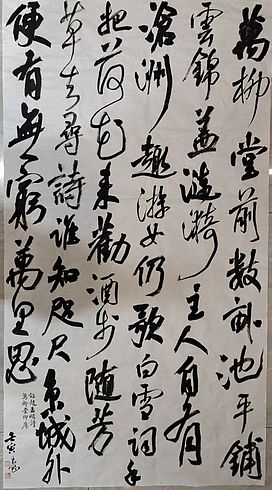 萬柳堂前數畝池平鋪
雲錦蓋漣漪主人自有
滄洲趣游女仍歌白雪詞手
把荷花來勸酒步隨芳
草去尋詩誰知咫尺京城外
便有無窮萬里思
錄趙孟頫詩
萬柳堂即席
壬寅